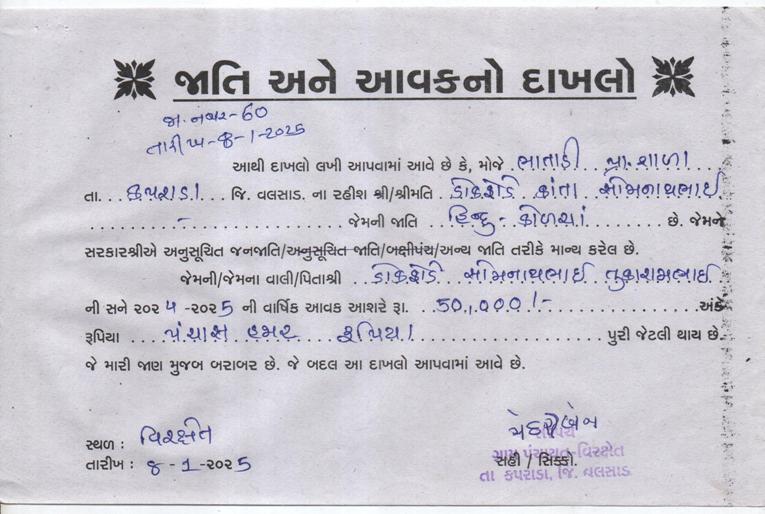 જાતિ અને આવકનો દાખલો
જા. નંબર-60
તારીખ-8-1-2025
આથી દાખલો લખી આપવામાં આવે છે કે, મોજે ભાતાડી પ્રા. શાળા
તા. કપરાડા જિ. વલસાડ. ના રહીશ શ્રી/શ્રીમતિ કાંતા સોમનાથભાઈ
- જેમની જાતિ હિન્દુ - કોળચાં છે. જેમને
સરકારશ્રીએ અનુસૂચિત જનજાતિ/અનુસૂચિત જાતિ/બક્ષીપંચ/અન્ય જાતિ તરીકે માન્ય કરેલ છે.
જેમની/જેમના વાલી/પિતાશ્રી સોમનાથભાઈ તુકારામભાઈ
ની સને ૨૦૨4 -૨૦૨5 ની વાર્ષિક આવક આશરે રૂા. 50,000/- અંકે
રૂપિયા પંચાસ હજાર રૂપિયા પુરી જેટલી થાય છે.
જે મારી જાણ મુજબ બરાબર છે. જે બદલ આ દાખલો આપવામાં આવે છે.
સ્થળ : વિરક્ષેત
તારીખ : 8 -1 -૨૦૨5
સરપંચ
ગ્રામ પંચાયત-વિરક્ષેત
સહી / સિક્કો.
તા કપરાડા, જિ. વલસાડ